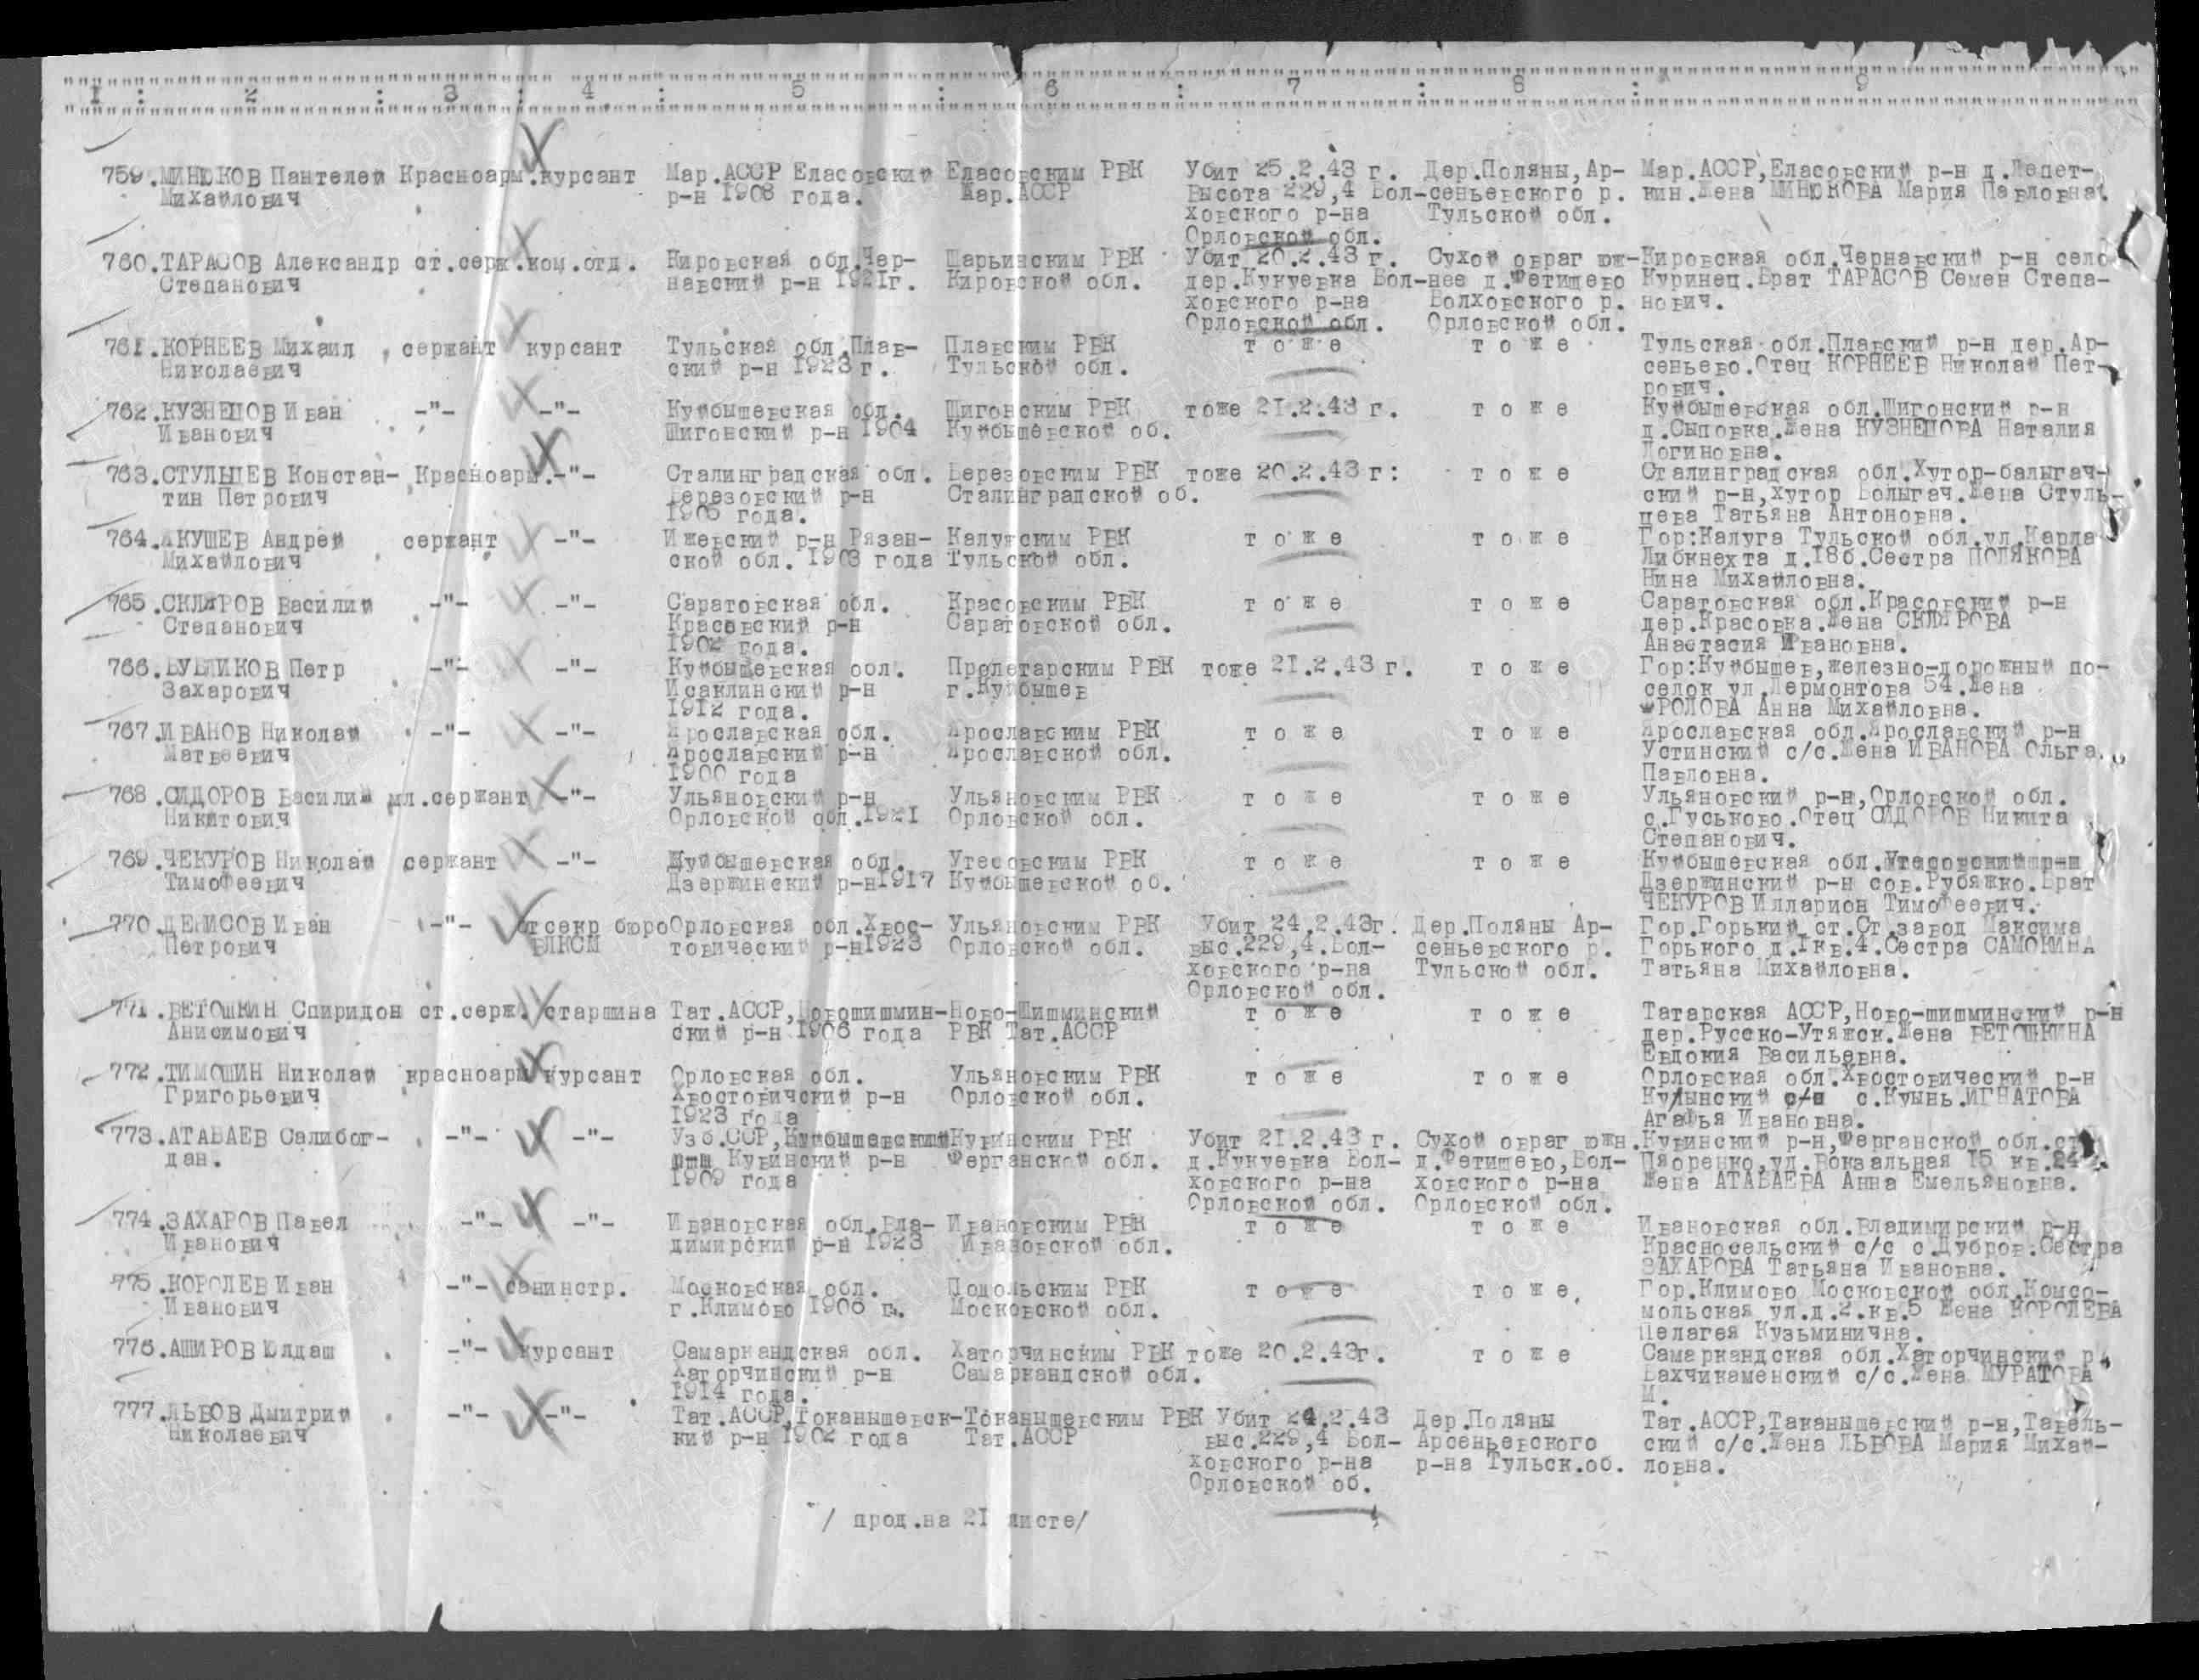 I : 2 : 3 : 4 : 5 : 6 : 7 : 8 : 9
759.МИНЮКОВ Пантелей Красноарм.курсант Мар.АССР Еласовский Еласовским РВК Убит 25.2.43 г. Дер.Поляны,Ар- Мар.АССР,Еласовский р-н д.Лепет-
Михайлович р-н 1908 года. Мар.АССР Высота 229,4 Бол-сеньевского р. кин.Жена МИНЮКОВА Мария Павловна.
ховского р-на Тульской обл.
Орловской обл.
760.ТАРАСОВ Александр ст.серж.ком.отд. Кировская обл.Чер- Шарьинским РВК Убит 20.2.43 г. Сухой овраг юж-Кировская обл.Чернавский р-н село
Степанович навский р-н 1921г. Кировской обл. дер.Кукуевка Бол-нее д.Фетищево Куринец.Брат ТАРАСОВ Семен Степа-
ховского р-на Волховского р. нович.
Орловской обл. Орловской обл.
761.КОРНЕЕВ Михаил сержант курсант Тульская обл.Плав- Плавским РВК т о ж е т о ж е Тульская обл.Плавский р-н дер.Ар-
Николаевич ский р-н 1923г. Тульской обл. сеньево.Отец КОРНЕЕВ Николай Пет-
рович.
762.КУЗНЕЦОВ Иван -"- -"- Куйбышевская обл. Шигонским РВК тоже 21.2.43 г. т о ж е Куйбышевская обл.Шигонский р-н
Иванович Шигонский р-н 1904 Куйбышевской об. д.Сыповка.Жена КУЗНЕЦОВА Наталия
Логиновна.
763.СТУЛЬЦЕВ Констан- Красноарм.-"- Сталинградская обл. Березовским РВК тоже 20.2.43 г: т о ж е Сталинградская обл.Хутор-балыгач-
тин Петрович Березовский р-н Сталинградской об. ский р-н,хутор Болыгач.Жена Стуль-
1905 года. цева Татьяна Антоновна.
764.ЯКУШЕВ Андрей сержант -"- Ижевский р-н Рязан- Калужским РВК т о ж е т о ж е Гор:Калуга Тульской обл.ул.Карла
Михайлович ской обл. 1903 года Тульской обл. Либкнехта д.18б.Сестра ПОЛЯКОВА
Нина Михайловна.
765.СКЛЯРОВ Василий -"- -"- Саратовская обл. Красовским РВК т о ж е т о ж е Саратовская обл.Красовский р-н
Степанович Красовский р-н Саратовской обл. дер.Красовка.Жена СКЛЯРОВА
1902 года. Анастасия Ивановна.
766.БУБЛИКОВ Петр -"- -"- Куйбышевская обл. Пролетарским РВК тоже 21.2.43 г. т о ж е Гор:Куйбышев,железно-дорожный по-
Захарович Исаклинский р-н г.Куйбышев селок ул.Лермонтова 54.Жена
1912 года. ФРОЛОВА Анна Михайловна.
767.ИВАНОВ Николай -"- -"- Ярославская обл. Ярославским РВК т о ж е т о ж е Ярославская обл.Ярославский р-н
Матвеевич Ярославский р-н Ярославской обл. Устинский с/с.Жена ИВАНОВА Ольга
1900 года Павловна.
768.СИДОРОВ Василий мл.сержант -"- Ульяновский р-н Ульяновским РВК т о ж е т о ж е Ульяновский р-н,Орловской обл.
Никитович Орловской обл.1921 Орловской обл. с.Гуськово.Отец СИДОРОВ Никита
Степанович.
769.ЧЕКУРОВ Николай сержант -"- Куйбышевская обл. Утесовским РВК т о ж е т о ж е Куйбышевская обл.Утесовский р-н
Тимофеевич Дзержинский р-н1917 Куйбышевской об. Дзержинский р-н сов.Рубяжко.Брат
ЧЕКУРОВ Илларион Тимофеевич.
770.ДЕНИСОВ Иван -"- отсекр бюро Орловская обл.Хвос- Ульяновским РВК Убит 24.2.43г. Дер.Поляны Ар- Гор.Горький ст.Ст.завод Максима
Петрович ВЛКСМ товический р-н1923 Орловской обл. выс.229,4.Бол- сеньевского р. Горького д.1кв.4.Сестра САМОКИНА
ховского р-на Тульской обл. Татьяна Михайловна.
Орловской обл.
771.ВЕТОШКИН Спиридон ст.серж. старшина Тат.АССР,Новошишмин-Ново-Шишминский т о ж е т о ж е Татарская АССР,Ново-шишминский р-н
Анисимович ский р-н 1906 года РВК Тат.АССР дер.Русско-Утяжск.Жена ВЕТОШКИНА
Евдокия Васильевна.
772.ТИМОШИН Николай красноарм курсант Орловская обл. Ульяновским РВК т о ж е т о ж е Орловская обл.Хвостовический р-н
Григорьевич Хвостовичский р-н Орловской обл. с/с с.Куынь.ИГНАТОВА
1923 года Агафья Ивановна.
773.АТАБАЕВ Салибог- -"- -"- Узб.ССР,Куйбышевский Кувинским РВК Убит 21.2.43 г. Сухой овраг южн.Кувинский р-н,Ферганской обл.ст.
дан. Кувинский р-н Ферганской обл. д.Кукуевка Бол- д.Фетищево,Бол- Пяоренко,ул.Вокзальная 15 кв.24
1909 года ховского р-на ховского р-на Жена АТАБАЕВА Анна Емельяновна.
Орловской обл. Орловской обл.
774.ЗАХАРОВ Павел -"- -"- Ивановская обл.Вла- Ивановским РВК т о ж е т о ж е Ивановская обл.Владимирский р-н
Иванович димирский р-н 1923 Ивановской обл. Красносельский с/с с.Дубров.Сестра
ЗАХАРОВА Татьяна Ивановна.
775.КОРОЛЕВ Иван -"- санинстр. Московская обл. Подольским РВК т о ж е т о ж е. Гор.Климово Московской обл.Комсо-
Иванович г.Климово 1906 г. Московской обл. мольская ул.д.2.кв.5 Жена КОРОЛЕВА
Пелагея Кузьминична.
776.АШИРОВ Юлдаш -"- курсант Самаркандская обл. Хаторчинским РВК тоже 20.2.43г. т о ж е Самаркандская обл.Хаторчинский р
Хаторчинский р-н Самаркандской обл. Бахчикаменский с/с.Жена МУРАТОВА
1914 года. М.
777.ЛЬВОВ Дмитрий -"- -"- Тат.АССР,Токанышевск-Токанышевским РВК Убит 24.2.43 Дер.Поляны Тат.АССР,Таканышевский р-н,Тавель-
Николаевич кий р-н 1902 года Тат.АССР выс.229,4 Бол- Арсеньевского ский с/с.Жена ЛЬВОВА Мария Михай-
ховского р-на р-на Тульск.об. ловна.
Орловской об.
/ прод.на 21 листе/